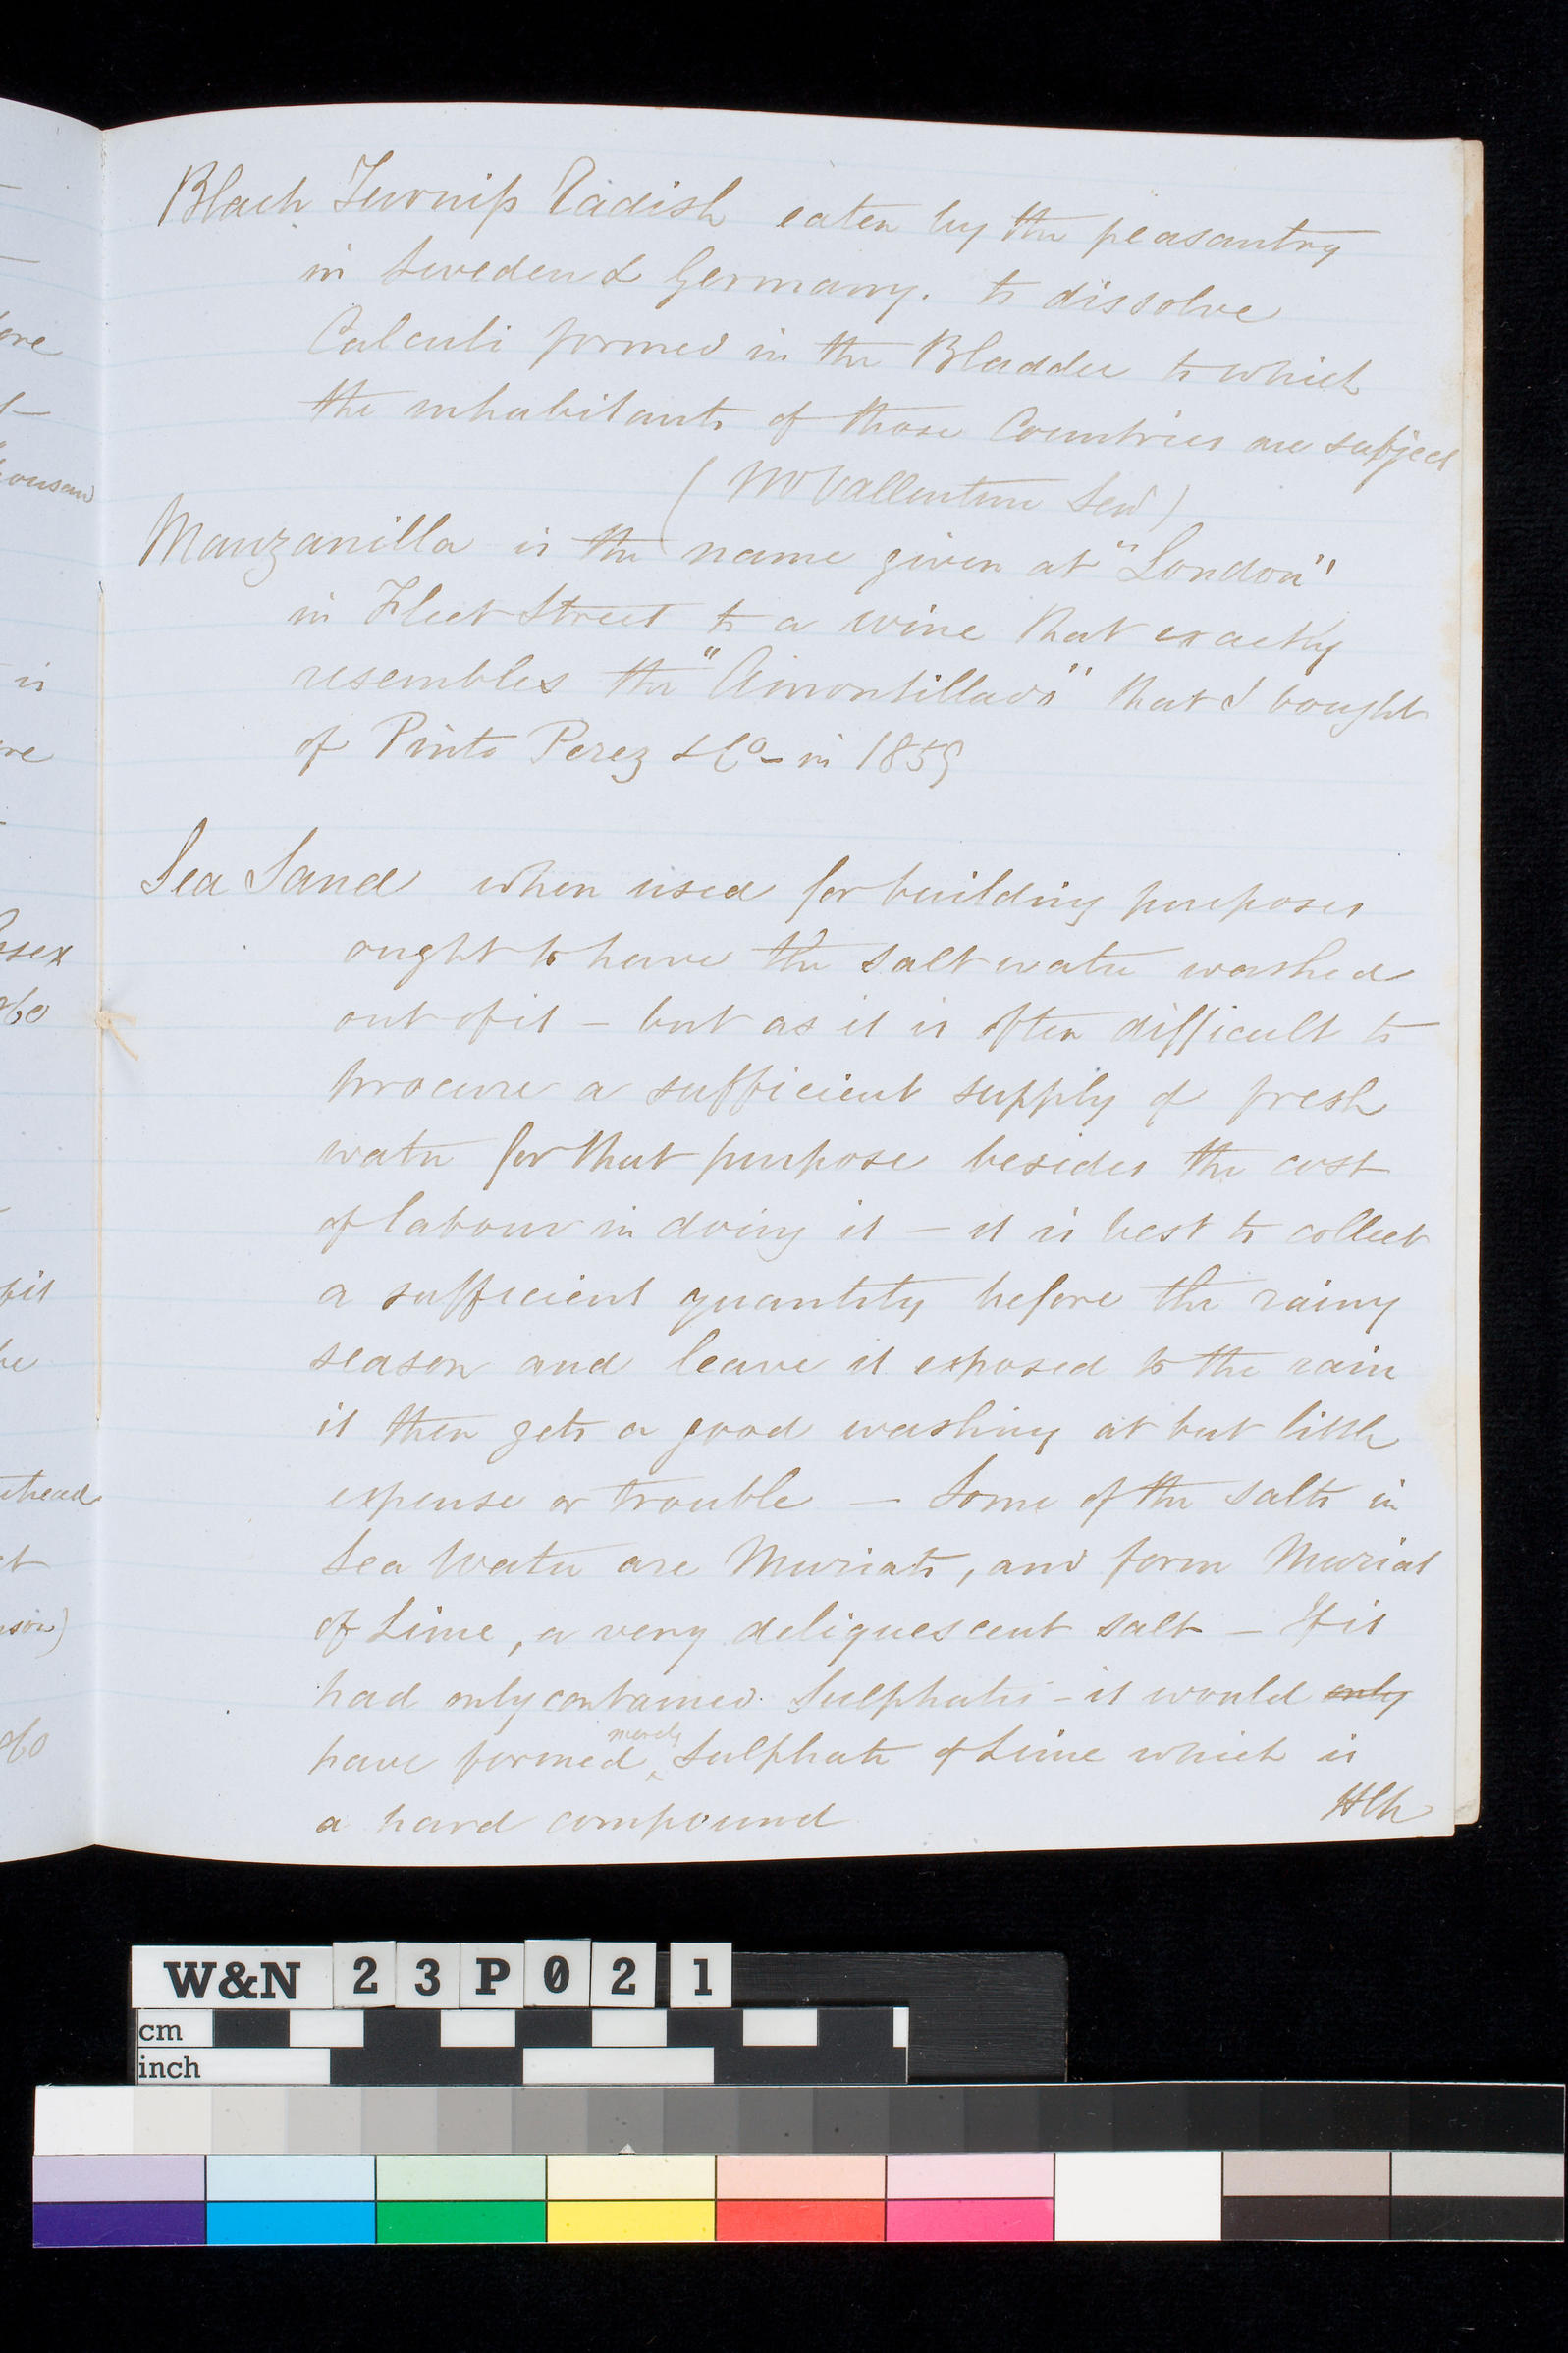 Black Turnip Radish eaten by the peasantry
in Sweden & Germany. to dissolve
Calculi formed in the Bladder to which
the inhabitants of those Countries are subject
(Mr Vallentine Senr)
Manzanilla is the name given at "London"
in Fleet Street to a wine that exactly
resembles the "Amontillado" that I bought
of Pinto Perez & Co in 1859
Sea Sand when used for building purposes
ought to have the salt water washed
out of it - but as it is often difficult to
procure a sufficient supply of fresh
water for that purpose besides the cost
of labour in doing it - it is best to collect
a sufficient quantity before the rainy
season and leave it exposed to the rain
it then gets a good washing at but little
expense or trouble - Some of the salts in
Sea Water are Muriats, and form Muriat
of Lime, a very deliquescent salt - If it
had only contained Sulphates - it would only
have formed merely Sulphate of Lime which is
a hard compound
W&N 23P021
cm
inch